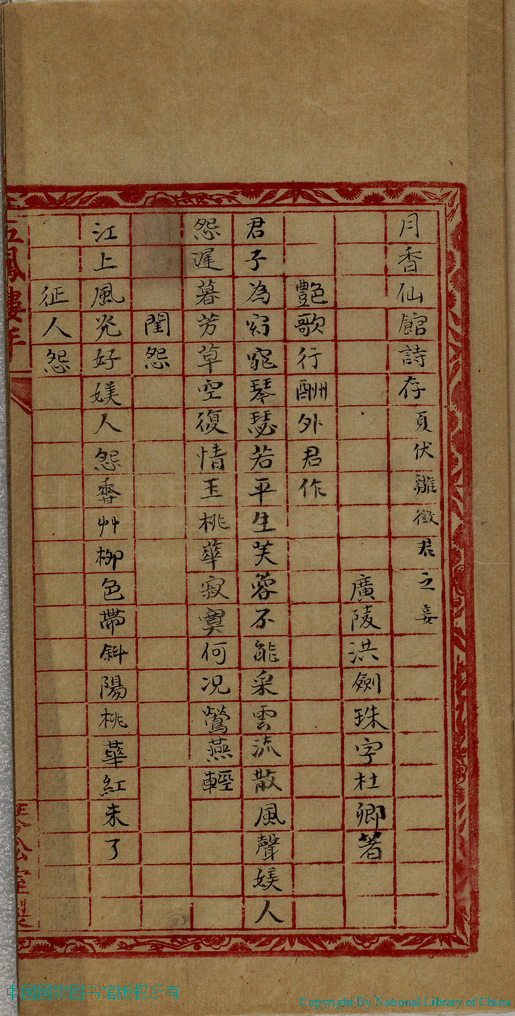 月香仙館詩存 頁伏離徵君之妾
廣陵洪劍珠字杜卿著
艷歌行酬外君作
君子為窈窕琴瑟若平生芙蓉不能采雲流散風聲媄人
怨遲暮芳草空復情玉桃華寂寞何况鶯燕輕
閨怨
江上風光好媄人怨香艸柳色帶斜陽桃華紅未了
征人怨
Copyright By National Library of China